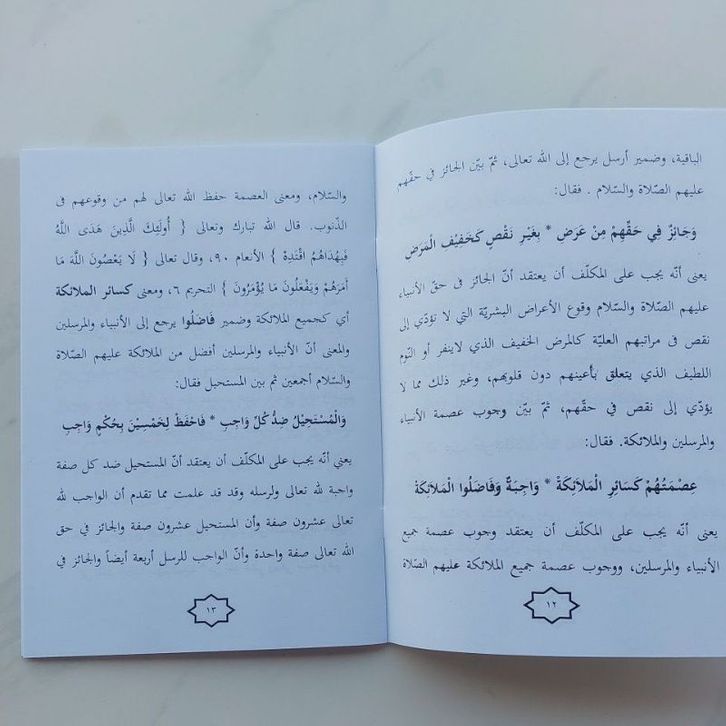 الباقية، وضمير أرسل يرجع إلى الله تعالى، ثمّ بيّن الجائز في حقّهم
عليهم الصّلاة والسّلام . فقال:
وَجَائِزٌ فِي حَقِّهِمْ مِنْ عَرَضِ * بِغَيْرِ نَقْصٍ كَخَفِيْفِ الْمَرَضِ
يعنى أنّه يجب على المكلّف أن يعتقد أنّ الجائز فى حقّ الأنبياء
عليهم الصّلاة والسّلام وقوع الأعراض البشريّة التي لا تؤدّي إلى
نقص فى مراتبهم العليّة كالمرض الخفيف الذي لاينفر أو النّوم
اللطيف الذي يتعلق بأعينهم دون قلوبهم، وغير ذلك مما لا
يؤدّي إلى نقص في حقّهم، ثمّ بيّن وجوب عصمة الأنبياء
والمرسلين والملائكة. فقال:
عِصْمَتُهُمْ كَسَائِرِ الْمَلَائِكَةْ * وَاجِبَةٌ وَفَاضَلُوا الْمَلَائِكَةْ
يعنى أنّه يجب على المكلّف أن يعتقد وجوب عصمة جميع
الأنبياء والمرسلين، ووجوب عصمة جميع الملائكة عليهم الصّلاة
١٢
والسّلام، ومعنى العصمة حفظ الله تعالى لهم من وقوعهم فى
الذّنوب. قال الله تبارك وتعالى { أُولَئِكَ الَّذِينَ هَدَى اللَّهُ
فَبِهُدَاهُمُ اقْتَدِهْ } الأنعام ٩٠، وقال تعالى { لَا يَعْصُونَ اللَّهَ مَا
أَمَرَهُمْ وَيَفْعَلُونَ مَا يُؤْمَرُونَ } التحريم ٦، ومعنى كسائر الملائكة
أي كجميع الملائكة وضمير فَاضَلُوا يرجع إلى الأنبياء والمرسلين
والمعنى أنّ الأنبياء والمرسلين أفضل من الملائكة عليهم الصّلاة
والسّلام أجمعين ثم بين المستحيل فقال:
وَالْمُسْتَحِيْلُ ضِدُّ كُلِّ وَاجِبِ * فَاحْفَظْ لِخَمْسِيْنَ بِحُكْمٍ وَاجِبِ
يعنى أنّه يجب على المكلّف أن يعتقد أنّ المستحيل ضد كل صفة
واجبة لله تعالى ولرسله وقد قد علمت مما تقدم أن الواجب لله
تعالى عشرون صفة وأن المستحيل عشرون صفة والجائز في حق
الله تعالى صفة واحدة وأنّ الواجب للرسل أربعة أيضاً والجائز في
١٣